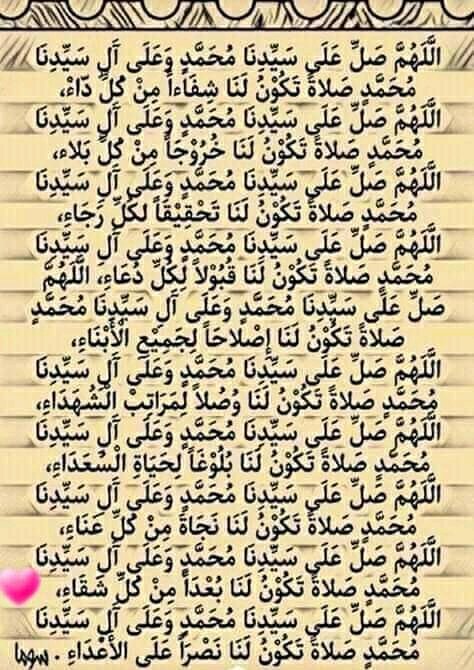 اللَّهُمَّ صَلِّ عَلَى سَيِّدِنَا مُحَمَّدٍ وَعَلَى آلِ سَيِّدِنَا
مُحَمَّدٍ صَلاةً تَكُوْنُ لَنَا شِفَاءاً مِنْ كُلِّ دَّاءْ،
اللَّهُمَّ صَلِّ عَلَى سَيِّدِنَا مُحَمَّدٍ وَعَلَى آلِ سَيِّدِنَا
مُحَمَّدٍ صَلاةً تَكُوْنُ لَنَا خُرُوْجَاً مِنْ كُلِّ بَلاء،
اللَّهُمَّ صَلِّ عَلَى سَيِّدِنَا مُحَمَّدٍ وَعَلَى آلِ سَيِّدِنَا
مُحَمَّدٍ صَلاةً تَكُوْنُ لَنَا تَحْقِيْقَاً لكُلِّ رَجَاءِ،
اللَّهُمَّ صَلِّ عَلَى سَيِّدِنَا مُحَمَّدٍ وَعَلَى آلِ سَيِّدِنَا
مُحَمَّدٍ صَلاةً تَكُوْنُ لَنَا قُبُوْلاً لِكُلِّ دُعَاءِ، اللَّهُمَّ
صَلِّ عَلَى سَيِّدِنَا مُحَمَّدٍ وَعَلَى آلِ سَيِّدِنَا مُحَمَّدٍ
صَلاةً تَكُوْنُ لَنَا إِصْلاحَاً لِجَمِيْعِ الْأَبْنَاءِ،
اللَّهُمَّ صَلِّ عَلَى سَيِّدِنَا مُحَمَّدٍ وَعَلَى آلِ سَيِّدِنَا
مُحَمَّدٍ صَلاةً تَكُوْنُ لَنَا وُصُلاً لِمَرَاتِبْ الْشُهَدَاءِ،
اللَّهُمَّ صَلِّ عَلَى سَيِّدِنَا مُحَمَّدٍ وَعَلَى آلِ سَيِّدِنَا
مُحَمَّدٍ صَلاةً تَكُوْنُ لَنَا بُلُوْغَاً لِحَيَاةِ الْسُعَدَاءِ،
اللَّهُمَّ صَلِّ عَلَى سَيِّدِنَا مُحَمَّدٍ وَعَلَى آلِ سَيِّدِنَا
مُحَمَّدٍ صَلاةً تَكُوْنُ لَنَا نَجَاةً مِنْ كُلِّ عَنَاءِ،
اللَّهُمَّ صَلِّ عَلَى سَيِّدِنَا مُحَمَّدٍ وَعَلَى آلِ سَيِّدِنَا
مُحَمَّدٍ صَلاةً تَكُوْنُ لَنَا بُعْدَاً مِنْ كُلِّ شَقَاءِ،
اللَّهُمَّ صَلِّ عَلَى سَيِّدِنَا مُحَمَّدٍ وَعَلَى آلِ سَيِّدِنَا
مُحَمَّدٍ صَلاةً تَكُوْنُ لَنَا نَصْرَاً عَلَى الْأَعْدَاءِ . سوها